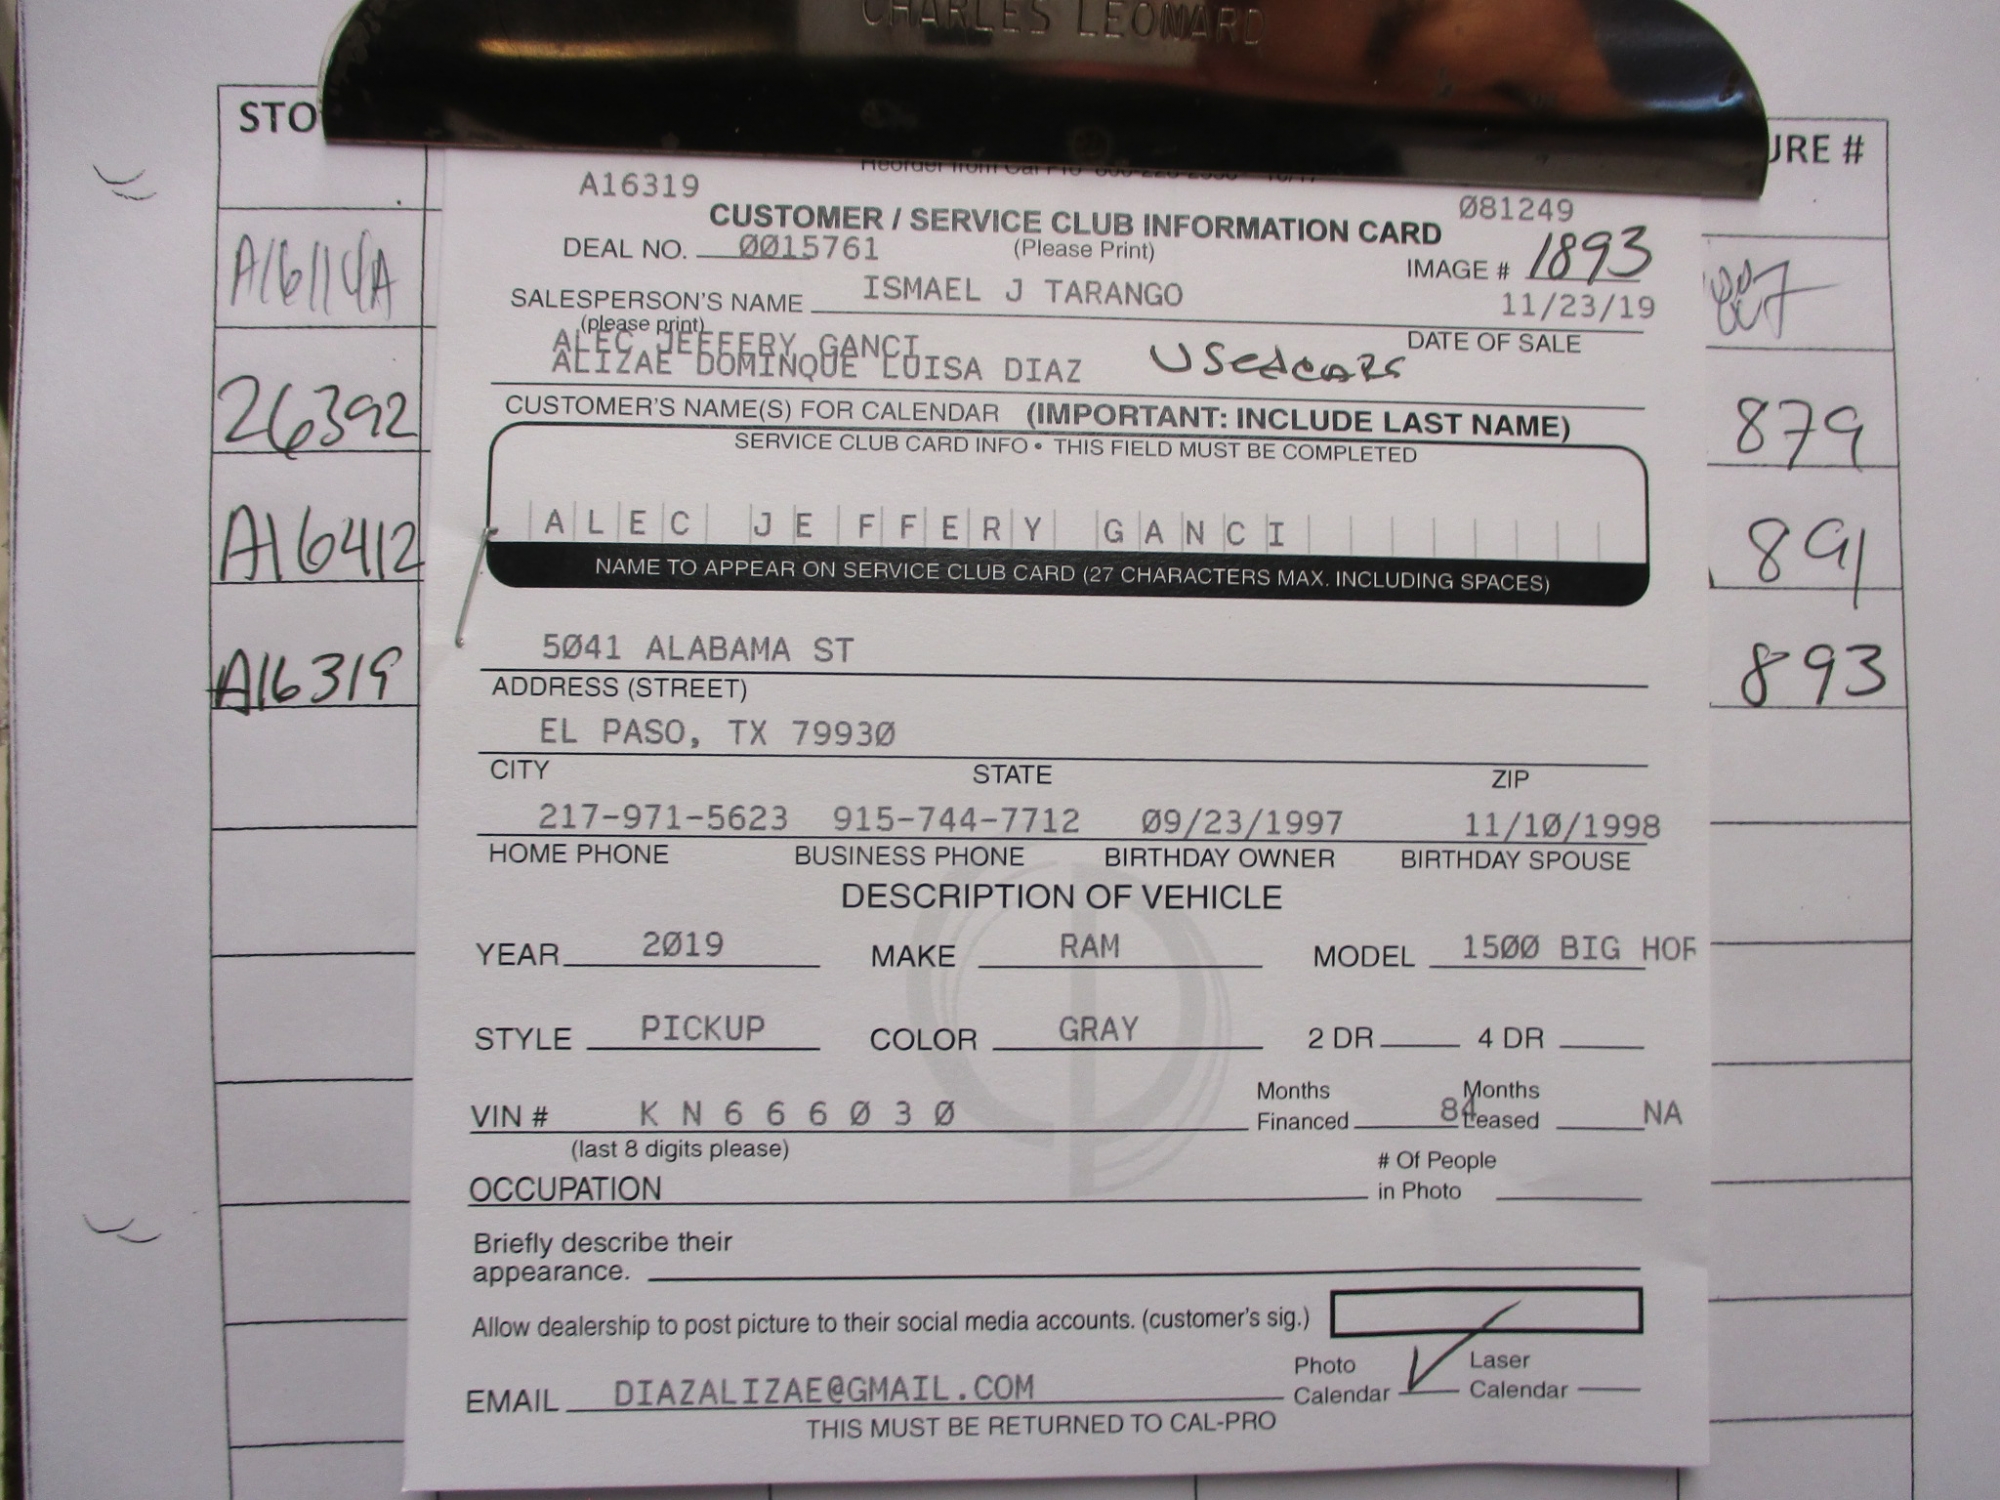 CHARLES LEONARD
STO
URE #
A16319
Ø81249
CUSTOMER / SERVICE CLUB INFORMATION CARD
DEAL NO. ØØ15761 (Please Print) IMAGE # 1893
A16114A
SALESPERSON'S NAME ISMAEL J TARANGO 11/23/19
(please print) DATE OF SALE
ALEC JEFFERY GANCI
ALIZAE DOMINQUE LUISA DIAZ Usedcars
26392
879
CUSTOMER'S NAME(S) FOR CALENDAR (IMPORTANT: INCLUDE LAST NAME)
SERVICE CLUB CARD INFO • THIS FIELD MUST BE COMPLETED
ALEC JEFFERY GANCI
A16412
891
NAME TO APPEAR ON SERVICE CLUB CARD (27 CHARACTERS MAX. INCLUDING SPACES)
5Ø41 ALABAMA ST
A16319
893
ADDRESS (STREET)
EL PASO, TX 7993Ø
CITY STATE ZIP
217-971-5623 915-744-7712 Ø9/23/1997 11/1Ø/1998
HOME PHONE BUSINESS PHONE BIRTHDAY OWNER BIRTHDAY SPOUSE
DESCRIPTION OF VEHICLE
YEAR 2Ø19 MAKE RAM MODEL 15ØØ BIG HOR
STYLE PICKUP COLOR GRAY 2 DR 4 DR
VIN # K N 6 6 6 Ø 3 Ø Months Financed 84 Months Leased NA
(last 8 digits please)
OCCUPATION # Of People in Photo
Briefly describe their
appearance.
Allow dealership to post picture to their social media accounts. (customer's sig.)
EMAIL DIAZALIZAE@GMAIL.COM Photo Calendar Laser Calendar
THIS MUST BE RETURNED TO CAL-PRO